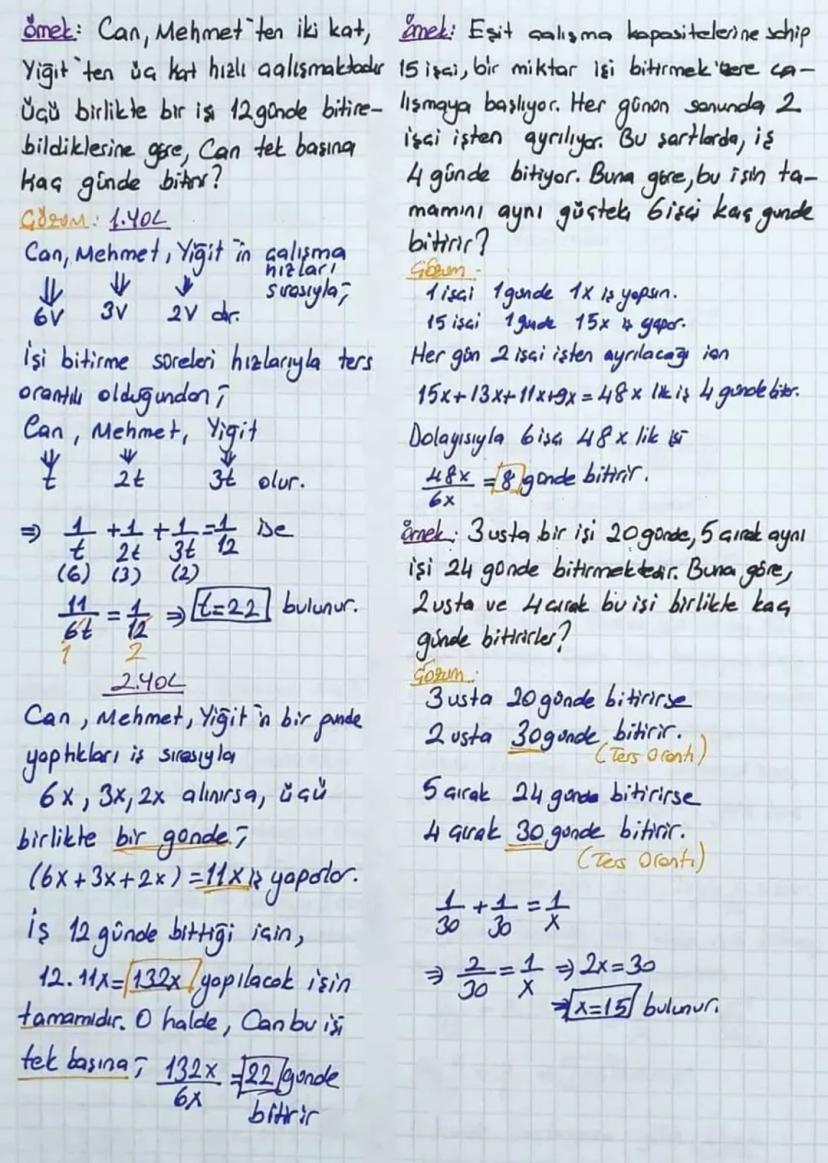 Örnek: Can, Mehmet'ten iki kat,
Yiğit'ten üç kat hızlı çalışmaktadır
Üçü birlikte bir iş 12 günde bitire-
bildiklerine göre, Can tek başına
kaç günde bitirir?
Çözüm: 1.YOL
Can, Mehmet, Yiğit'in çalışma
hızları
sırasıyla;
⇓ ⇓ ⇓
6V 3V 2V dir.
İşi bitirme süreleri hızlarıyla ters
orantılı olduğundan;
Can, Mehmet, Yiğit
⇓ ⇓ ⇓
t 2t 3t olur.
⇒ 1/t + 1/2t + 1/3t = 1/12 ise
(6) (3) (2)
11/6t = 1/12 ⇒ t=22 bulunur.
1 2
2.YOL
Can, Mehmet, Yiğit'in bir günde
yaptıkları iş sırasıyla
6x, 3x, 2x alınırsa, üçü
birlikte bir günde;
(6x+3x+2x)=11x iş yaparlar.
İş 12 günde bittiği için,
12.11x=132x yapılacak işin
tamamıdır. O halde, Can bu işi
tek başına; 132x/6x =22 günde
bitirir
Örnek: Eşit çalışma kapasitelerine sahip
15 işçi, bir miktar işi bitirmek üzere ça-
lışmaya başlıyor. Her günün sonunda 2
işçi işten ayrılıyor. Bu şartlarda, iş
4 günde bitiyor. Buna göre, bu işin ta-
mamını aynı güçteki 6 işçi kaç günde
bitirir?
Çözüm:
1 işçi 1 günde 1x iş yapsın.
15 işçi 1 günde 15x iş yapar.
Her gün 2 işçi işten ayrılacağı için
15x+13x+11x+9x=48x lik iş 4 günde biter.
Dolayısıyla 6 işçi 48x lik işi
48x/6x =8 günde bitirir.
Örnek: 3 usta bir işi 20 günde, 5 çırak aynı
işi 24 günde bitirmektedir. Buna göre,
2 usta ve 4 çırak bu işi birlikte kaç
günde bitirirler?
Çözüm:
3 usta 20 günde bitirirse
2 usta 30 günde bitirir.
(Ters Orantı)
5 çırak 24 günde bitirirse
4 çırak 30 günde bitirir.
(Ters Orantı)
1/30 + 1/30 = 1/x
⇒ 2/30 = 1/x ⇒ 2x=30
⇒ x=15 bulunur.